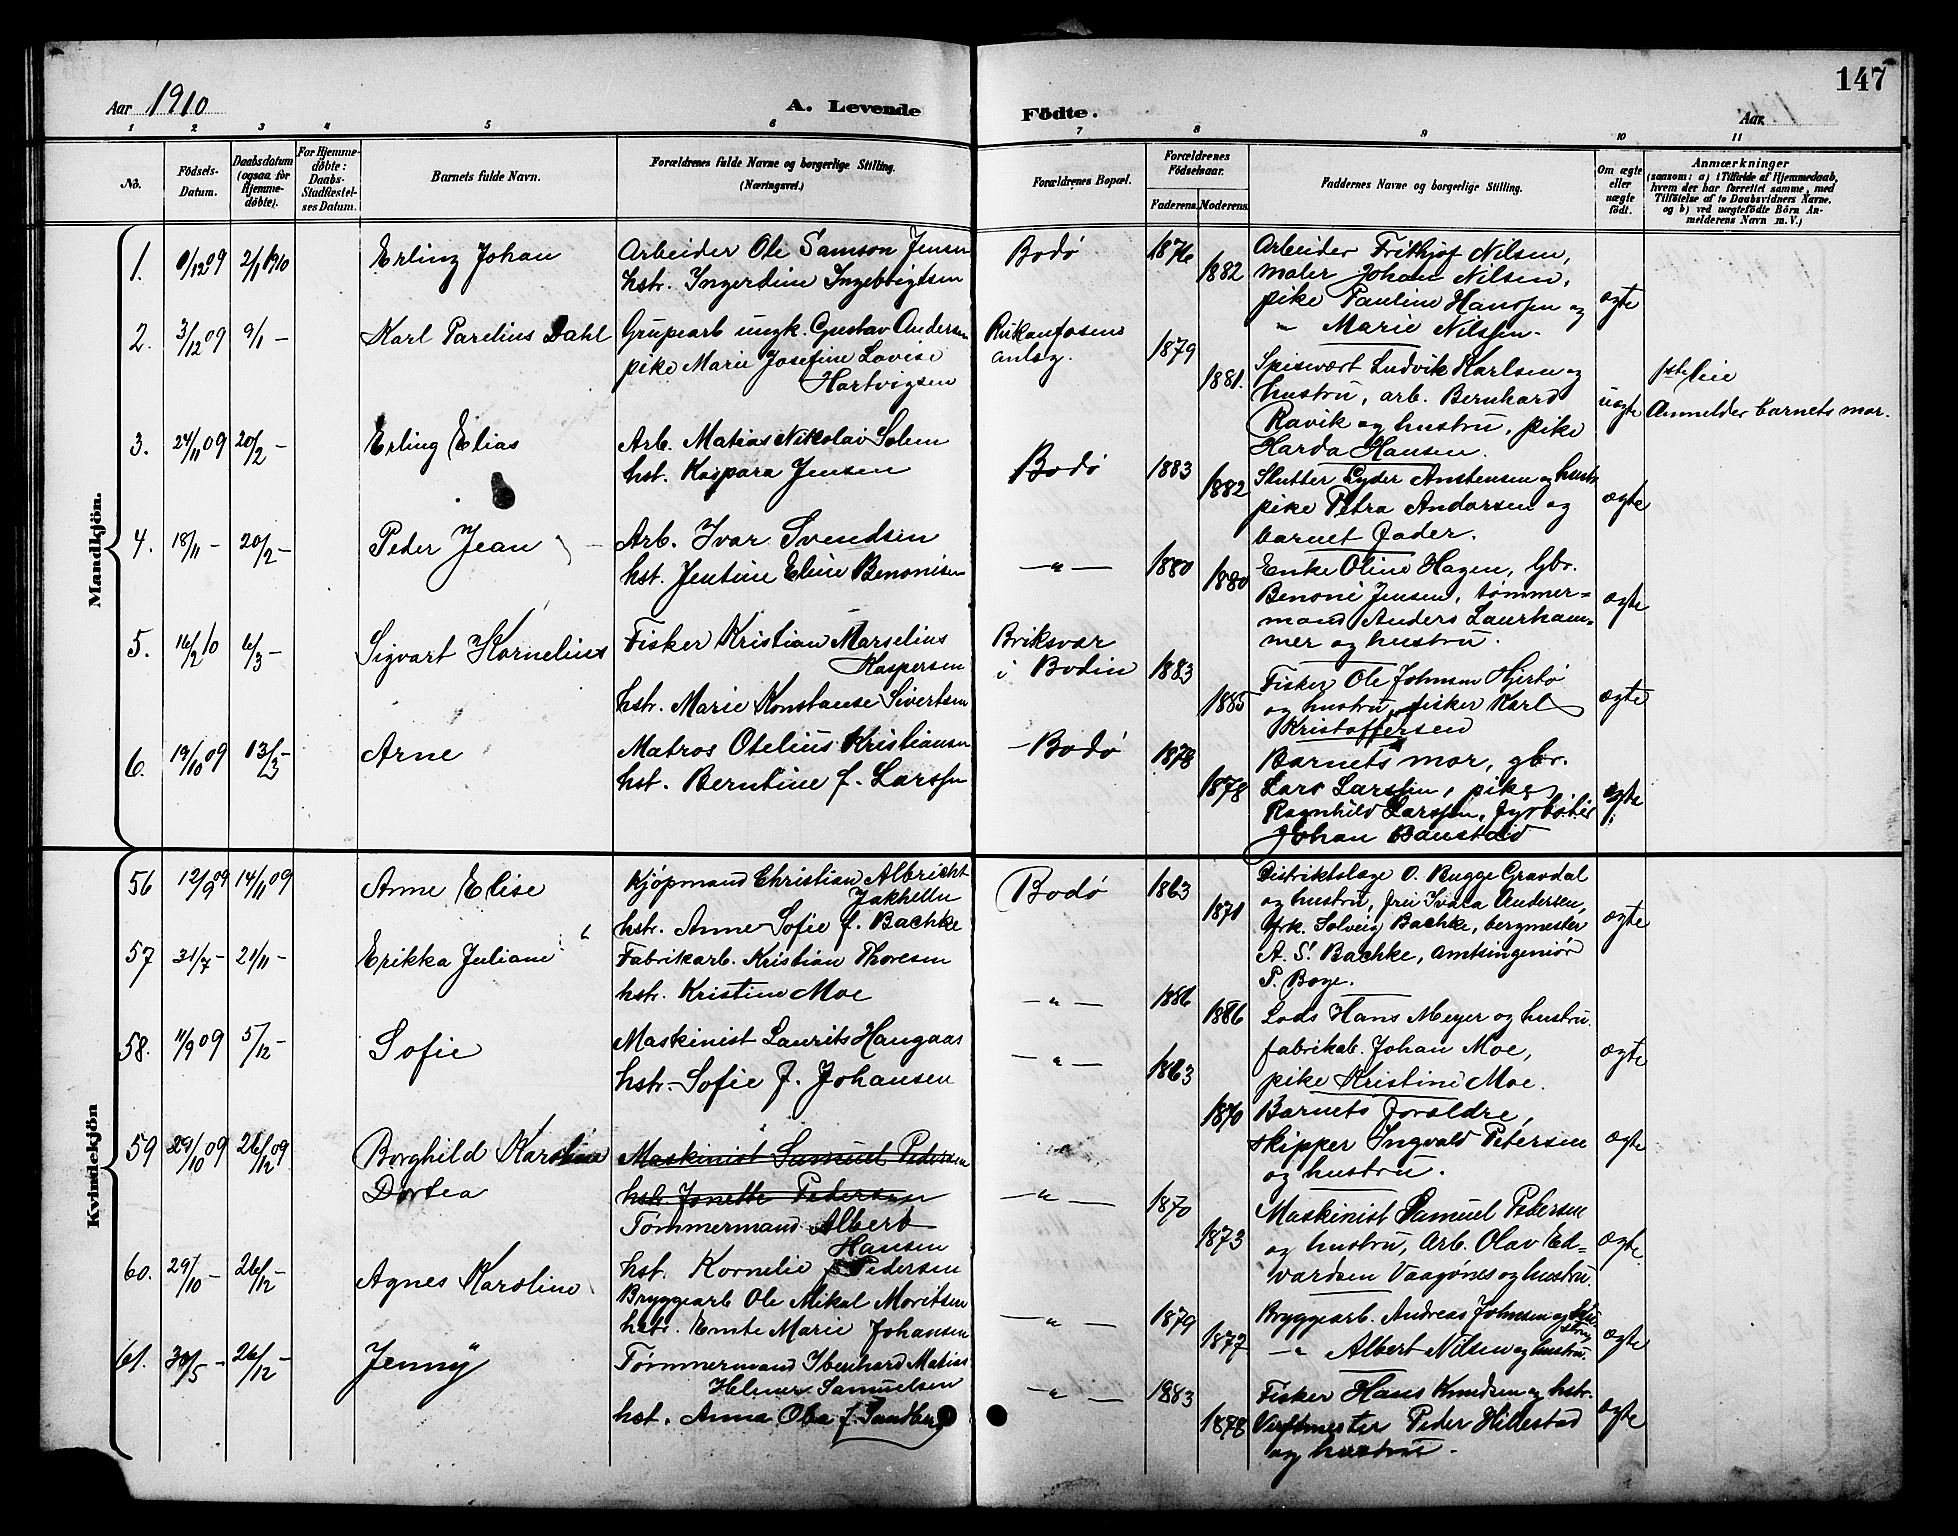 147
Aar 1910
A. Levende Födte.
Aar
1 2 3 4 5 6 7 8 9 10 11
No.
Födsels-Datum.
Daabsdatum (ogsaa for Hjemme-døbte).
For Hjemme-døbte: Daabs-Stadfæstel-ses Datum.
Barnets fulde Navn.
Forældrenes fulde Navne og borgerlige Stilling. (Næringsvei.)
Forældrenes Bopæl.
Forældrenes Födselsaar.
Faderens. Moderens.
Faddernes Navne og borgerlige Stilling.
Om ægte eller uægte födt.
Anmærkninger
(saasom: a) i Tilfælde af Hjemmedaab, hvem der har forrettet samme, med Tilföielse af to Daabsvidners Navne. og b) ved uægtefödte Börn Anmelderens Navn m. V.)
Mandkjön.
1. 2/1 1910 Erling Johan
Arbeider Ole Samson Jensen
hstr. Ingerdine Ingebrigtsen
Bodø 1876 1882
Arbeider Frithjof Nilsen,
maler Johan Nilsen,
pike Pauline Hanssen og
" Marie Nilssen.
ægte
2. 3/12 09 9/1 — Karl Parelius Dahl
Grupearb ungk. Gustav Andersen
pike Marie Josefine Lovise
Hartvigsen
Rukanfosens
anlæg.
1879 1881.
Spisevært Ludvik Karlsen og
hustru, arb. Bernhard
Ravik og hustru, pike
Harda Hansen.
uægte
1ste leie
Anmelder barnets mor.
3. 24/11 09 20/2 — Erling Elias
Arb. Matias Nikolai Solem
hst. Kaspara Jensen
Bodø 1883 1882
Slutter Lyder Anstensen og hustr.
pike Petra Andersen og
barnet fader.
ægte
4. 18/11 — 20/2 — Peder Jean
Arb. Ivar Svendsen
hst. Jentine Eline Benonisen
— " — 1880 1880
Enke Oline Hagen, Gbr.
Benoni Jensen, tømmer=
mand Anders Laurham-
mer og hustru.
ægte
5. 16/2 10 6/3 — Sigvart Kornelius
Fisker Kristian Marselius
Kaspersen
hstr. Marie Konstanse Sivertsen
Briksvær
i Bodin 1883 1885
Fisker Ole Johnsen Hjertø
og hustru, fisker Karl
Kristoffersen
ægte
6. 19/10 09 13/3 — Arne
Matros Otelius Kristiansen
hst. Berntine f. Larssen
— Bodø 1878 1878
Barnets mor, gbr.
Lars Larssen, pike
Ragnhild Larssen, fyrbøter
Johan Baustad
ægte
Kvindekjön
56 12/9 09 14/11 09 Anne Elise
Kjøpmand Christian Albricht
Jakhelln
hstr. Anne Sofie f. Bachke
Bodø 1863 1871
Distriktslæge O. Bugge Gravdal
og hustru, fru Ivara Andersen,
frk. Solveig Bachke, bergmester
A. S. Bachke, amtsingeniør
P. Boye.
ægte
57 31/7 — 21/11 — Erikka Juliane
Fabrikarb. Kristian Thoresen
hstr. Kristine Moe
— " — 1886 1886
Lods Hans Meyer og hustru.
fabrikab. Johan Moe,
pike Kristine Moe.
ægte
58. 11/9 09 5/12 — Sofie
Maskinist Laurits Haugaas
hstr. Sofie f. Johansen
— " — 1863 1870
Barnets forældre,
skipper Ingvald Petersen
og hustru.
ægte
59 29/10 09 26/12 09 Borghild Karoline
Dortea
Maskinist Samuel Pedersen
hstr Jonette Pedersen
Tømmermand Albert
Hansen
hst. Kornelie f. Pedersen
— " — 1870 1873
Maskinist Samuel Petersen
og hustru, Arb. Olav Ed=
vardsen Vaagønes og hustru.
ægte
60. 29/10 — 26/12 — Agnes Karoline
Bryggearb Ole Mikal Moritsen
hstr. Emte Marie Johansen
— " — 1879 1877
Bryggearb. Andreas Johnsen og hustru
— " Albert Nilsen og hustru.
ægte
61. 30/5 — 26/12 — Jenny
Tømmermand Ibenhard Matias
Helmer Samuelsen
hst. Anna Oba f. Sandberg
— " — 1883 1878
Fisker Hans Knudsen og hstr.
Verftmester Peder Hillestad
og hustru.
ægte